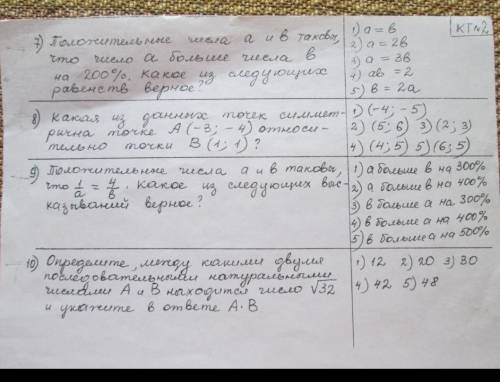 КТ №2
7) Положительные числа а и в таковы,
что число а больше числа в
на 200%. Какое из следующих
равенств верное?
1) а = в
2) а = 2в
3) а = 3в
4) ав = 2
5) в = 2а
8) Какая из данных точек симмет-
рична точке А(-3; -4) относи-
тельно точки В(1; 1)?
1) (-4; -5)
2) (5; 6) 3) (2; 3)
4) (4; 5) 5) (6; 5)
9) Положительные числа а и в таковы,
что 1/а = 4/в. Какое из следующих выс-
казываний верное?
1) а больше в на 300%
2) а больше в на 400%
3) в больше а на 300%
4) в больше а на 400%
5) в больше а на 500%
10) Определите, между какими двумя
последовательными натуральными
числами А и В находится число √32
и укажите в ответе А·В
1) 12 2) 20 3) 30
4) 42 5) 48